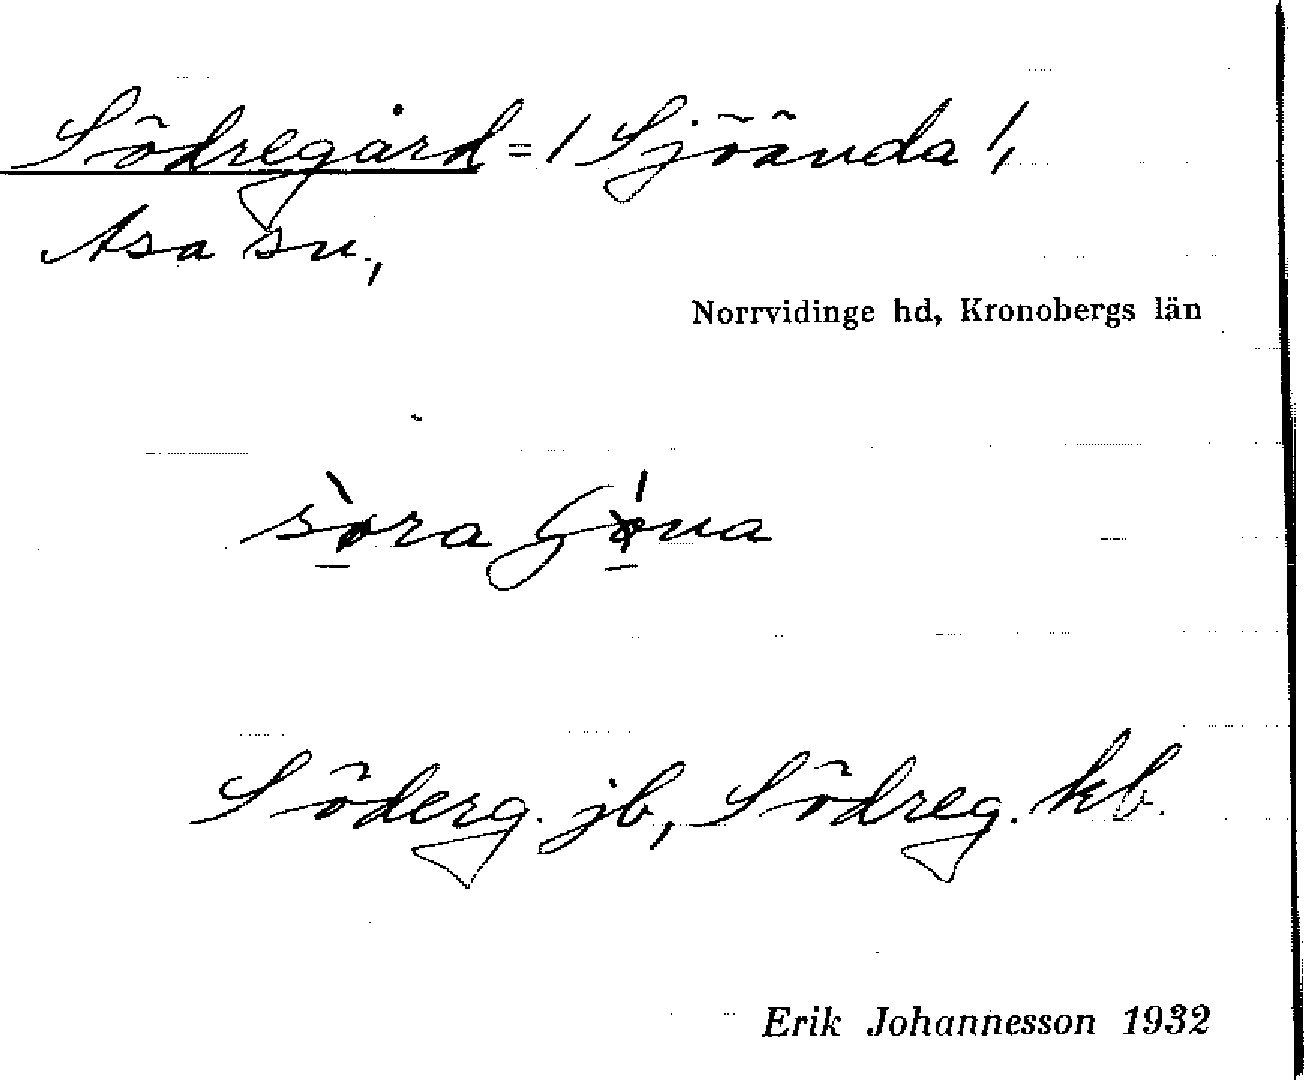 Södregård = / Sjöända /,
Asa sn.,
Norrvidinge hd, Kronobergs län
Söderg. jb, Södreg. kb.
Erik Johannesson 1932